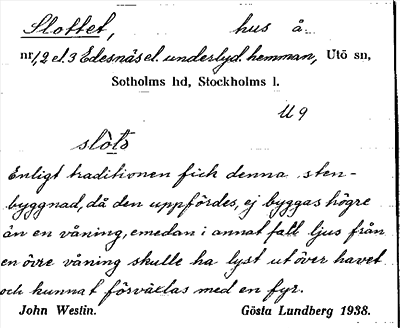 Slottet, hus å
nr 1, 2 el. 3 Edesnäs el. underlyd. hemman, Utö sn,
Sotholms hd, Stockholms l.
U 9
slòts
Enligt traditionen fick denna sten-
byggnad, då den uppfördes, ej byggas högre
än en våning, emedan i annat fall ljus från
en övre våning skulle ha lyst ut över havet
och kunnat förväxlas med en fyr.
John Westin. Gösta Lundberg 1938.